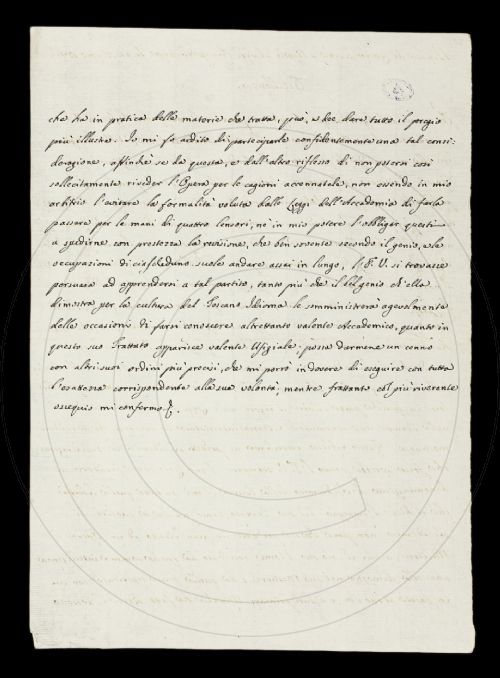 che ha in pratica delle materie che tratta, può, e dee dare tutto il pregio
più illustre. Io mi fo ardito di parteciparle confidentemente una tal consi-
derazione, affinchè se da questa, e dall'altro riflesso di non potersi così
sollecitamente riveder l'Opera per le cagioni accennatele, non essendo in mio
arbitrio l'evitare la formalità voluta dalle Leggi dell'Accademia di farla
passare per le mani di quattro Censori, nè in mio potere l'obbligar questi
a spedirne con prestezza la revisione, che ben sovente secondo il genio, e le
occupazioni di ciascheduno suole andare assai in lungo, l'E. V. si trovasse
persuasa ad apprendersi a tal partito, tanto più che il bel genio ch'ella
dimostra per la cultura del Toscano Idioma le somministrerà agevolmente
delle occasioni di farsi conoscere altrettanto valente Accademico, quanto in
questo suo Trattato apparisce valente Ufiziale, possa darmene un cenno
con altri suoi ordini più precisi, che mi porrò in dovere di eseguire con tutta
l'esattezza corrispondente alla sua volontà, mentre frattanto col più riverente
ossequio mi confermo